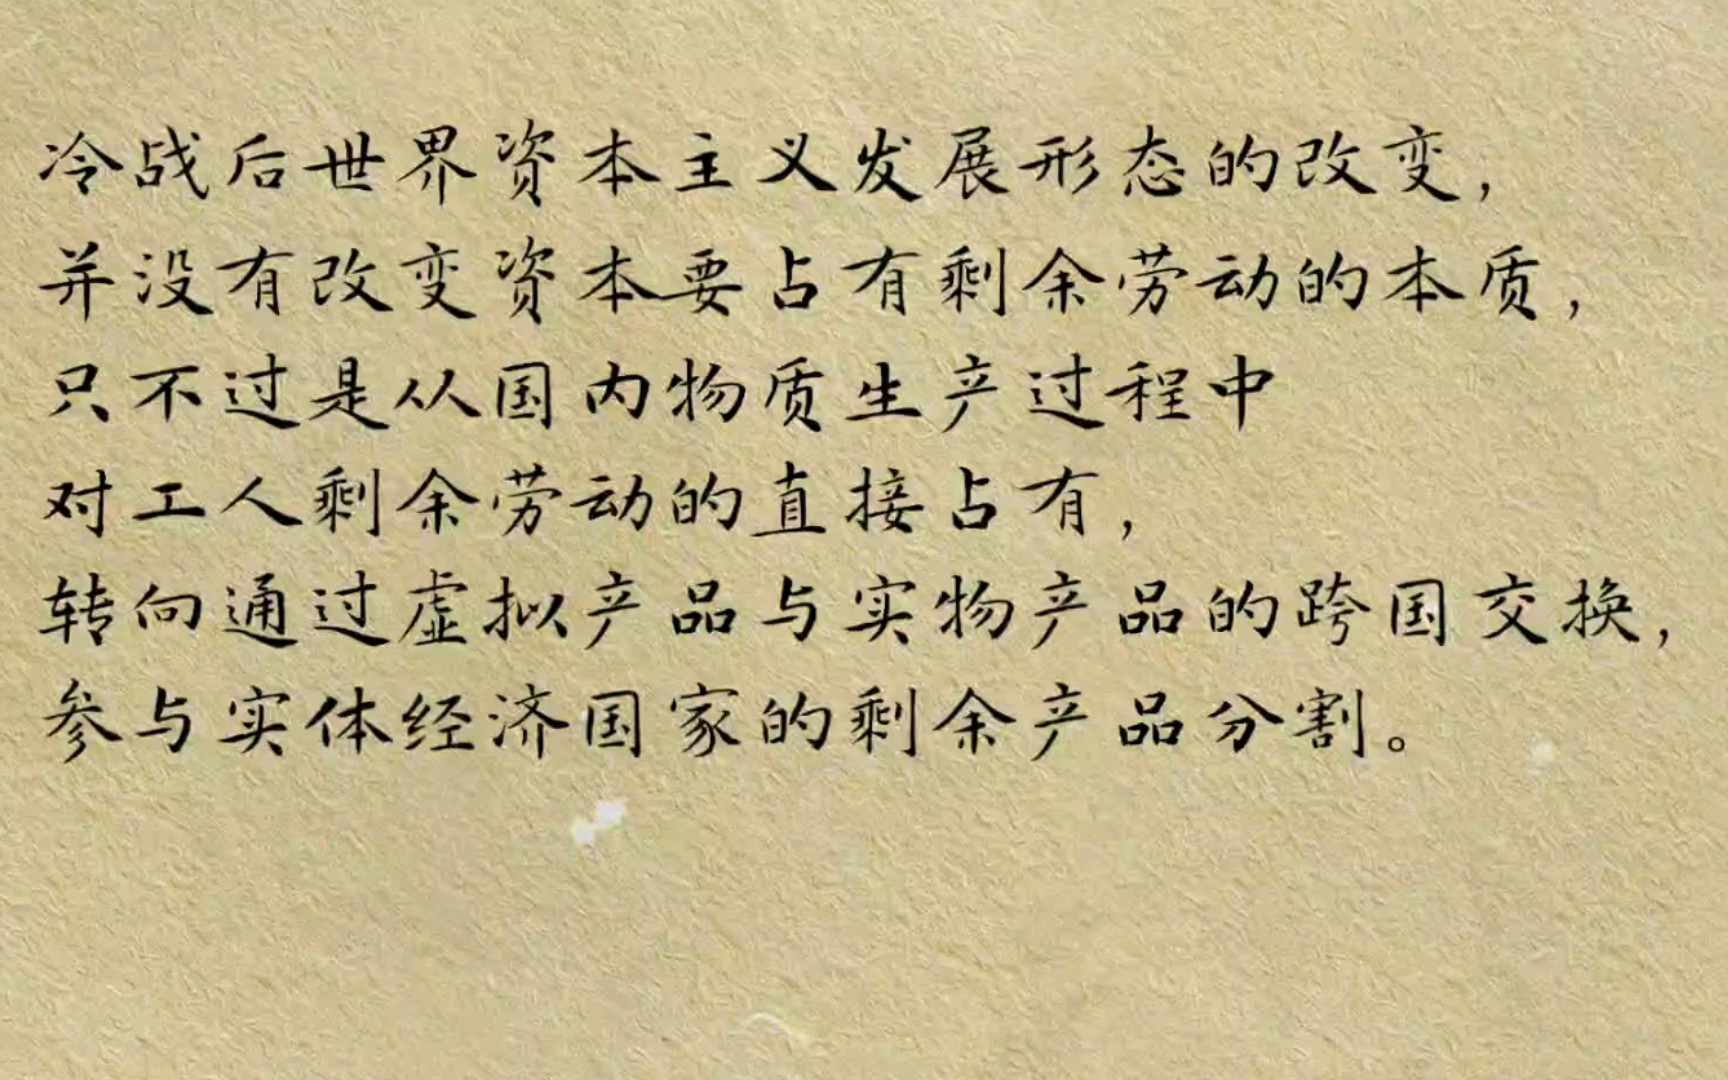 冷战后世界资本主义发展形态的改变，
并没有改变资本要占有剩余劳动的本质，
只不过是从国内物质生产过程中
对工人剩余劳动的直接占有，
转向通过虚拟产品与实物产品的跨国交换，
参与实体经济国家的剩余产品分割。